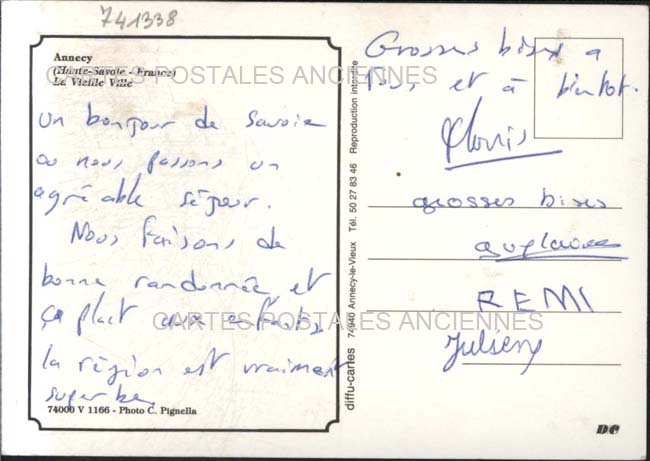 741338
Annecy
(Haute-Savoie - France)
La Vieille Ville
un bonjour de Savoie
ou nous passons un
agréable séjour.
Nous faisons de
bonne randonnée et
ça plait aux enfants
la région est vraiment
superbe
74000 V 1166 - Photo C. Pignella
diffu-cartes 74940 Annecy-le-Vieux Tél. 50 27 83 46 Reproduction interdite
Grosses bises a
tous, et à bientot.
grosses bises
REMI
Julien
DC
CARTES POSTALES ANCIENNES
CARTES POSTALES ANCIENNES